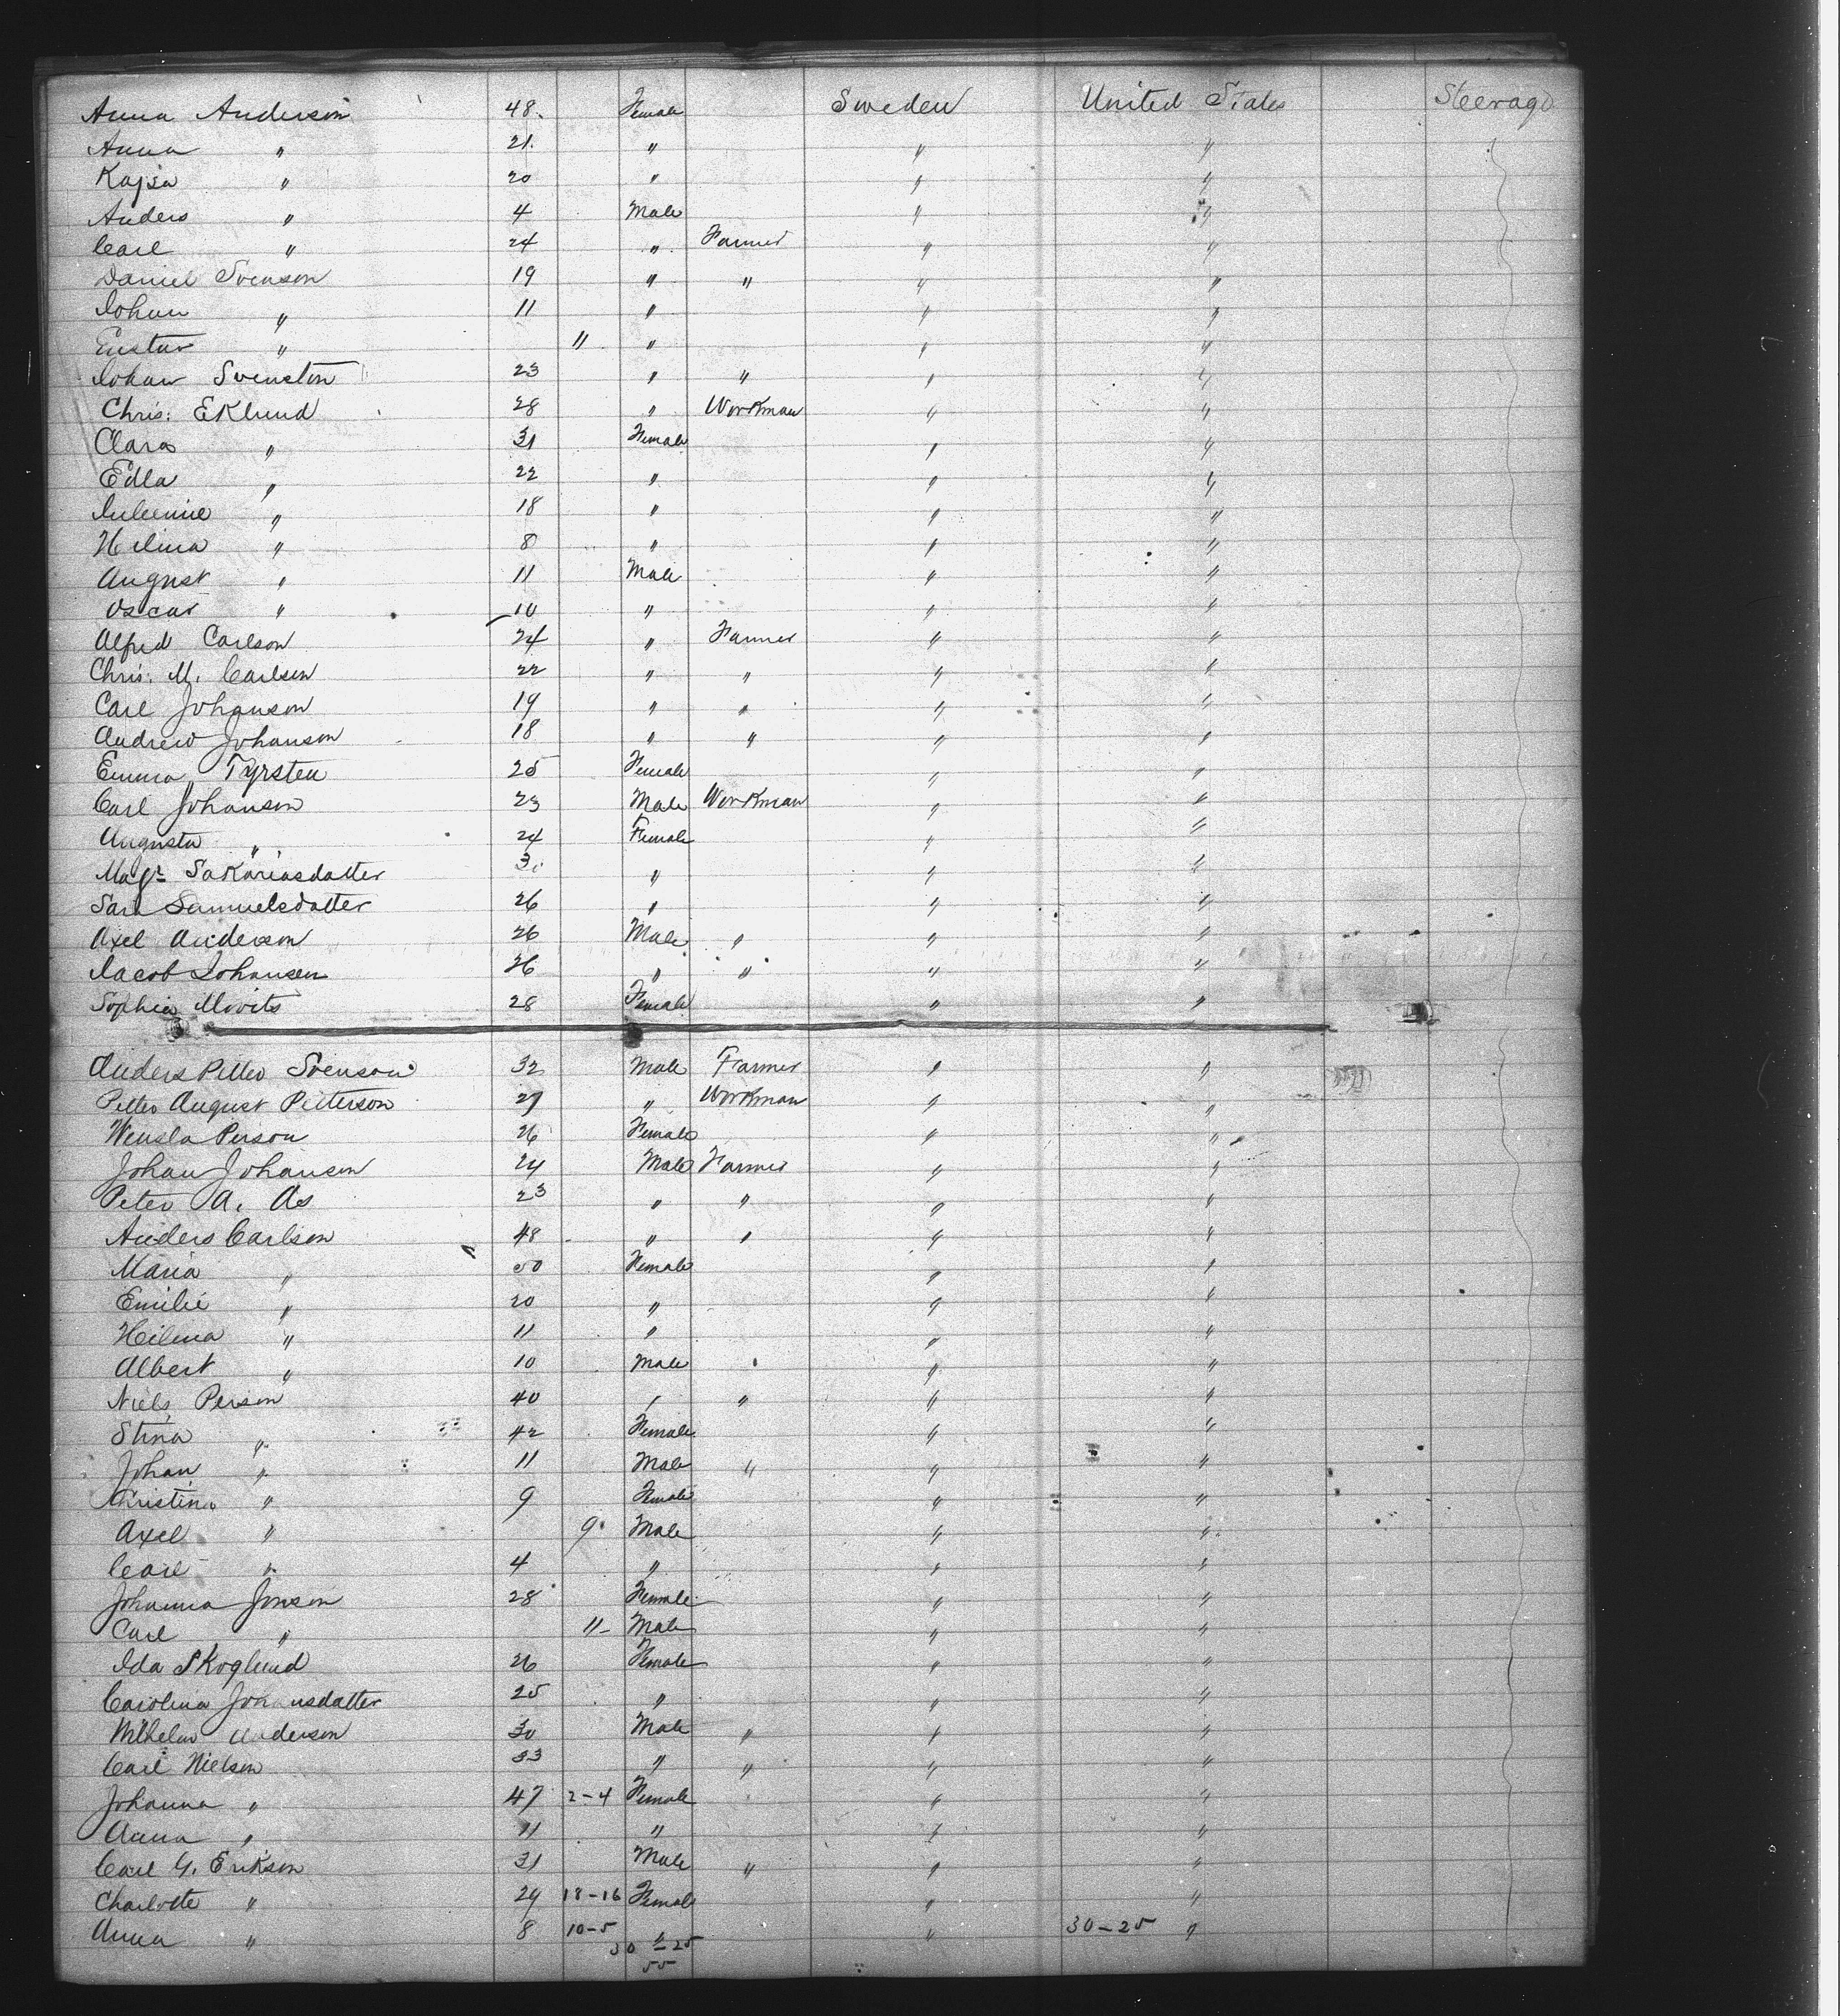 Anna Anderson 48. Female Sweden United States Steerage
Anna " 21. " " "
Kajsa " 20 " " "
Anders " 4 Male " "
Carl " 24 " Farmer " "
Daniel Svenson 19 " " " "
Johan " 11 " " "
Gustav " 11 " " "
Johan Svenston 23 " " " "
Chris: Eklund 28 " Workman " "
Clara " 31 Female " "
Edla " 22 " " "
" 18 " " "
Helina " 8 " " "
August " 11 Male " "
Oscar " 10 " " "
Alfred Carlson 24 " Farmer " "
Chris. M. Carlsen 22 " " " "
Carl Johanson 19 " " " "
Andrew Johanson 18 " " " "
Emma Tyrsten 25 Female " "
Carl Johanson 23 Male Workman " "
Augusta " 24 Female " "
Sakariasdatter " " "
Sara Samuelsdatter 26 " " "
Axel Anderson 26 Male " " "
Jacob Johansen 26 " " " "
Sophia Movits 28 Female " "
Anders Petter Svenson 32 Male Farmer " "
Petter August Petterson 27 " Workman " "
Person 26 Female " "
Johan Johanson 24 Male Farmer " "
Peter A. As 23 " " " "
Anders Carlson 48 " " " "
Maria " 50 Female " "
Emilie " 20 " " "
Heilina " 11 " " "
Albert " 10 Male " " "
Niels Person 40 " " " "
Stina " 42 Female " "
Johan " 11 Male " " "
Christina " 9 Female " "
Axel " 9 Male " "
Carl " 4 " " "
Johanna Jonson 28 Female " "
Carl " 11 Male " "
Ida Skoglund 26 Female " "
Carolina Johansdatter 25 " " "
Wilhelm Anderson 30 Male " " "
Carl Nielson 33 " " " "
Johanna " 47 2-4 Female " "
Anna " 11 " " "
Carl G. Erikson 31 Male " " "
Charlotte " 29 18-16 Female " "
Anna " 8 10-5 " " 30-25 "
30-25
55